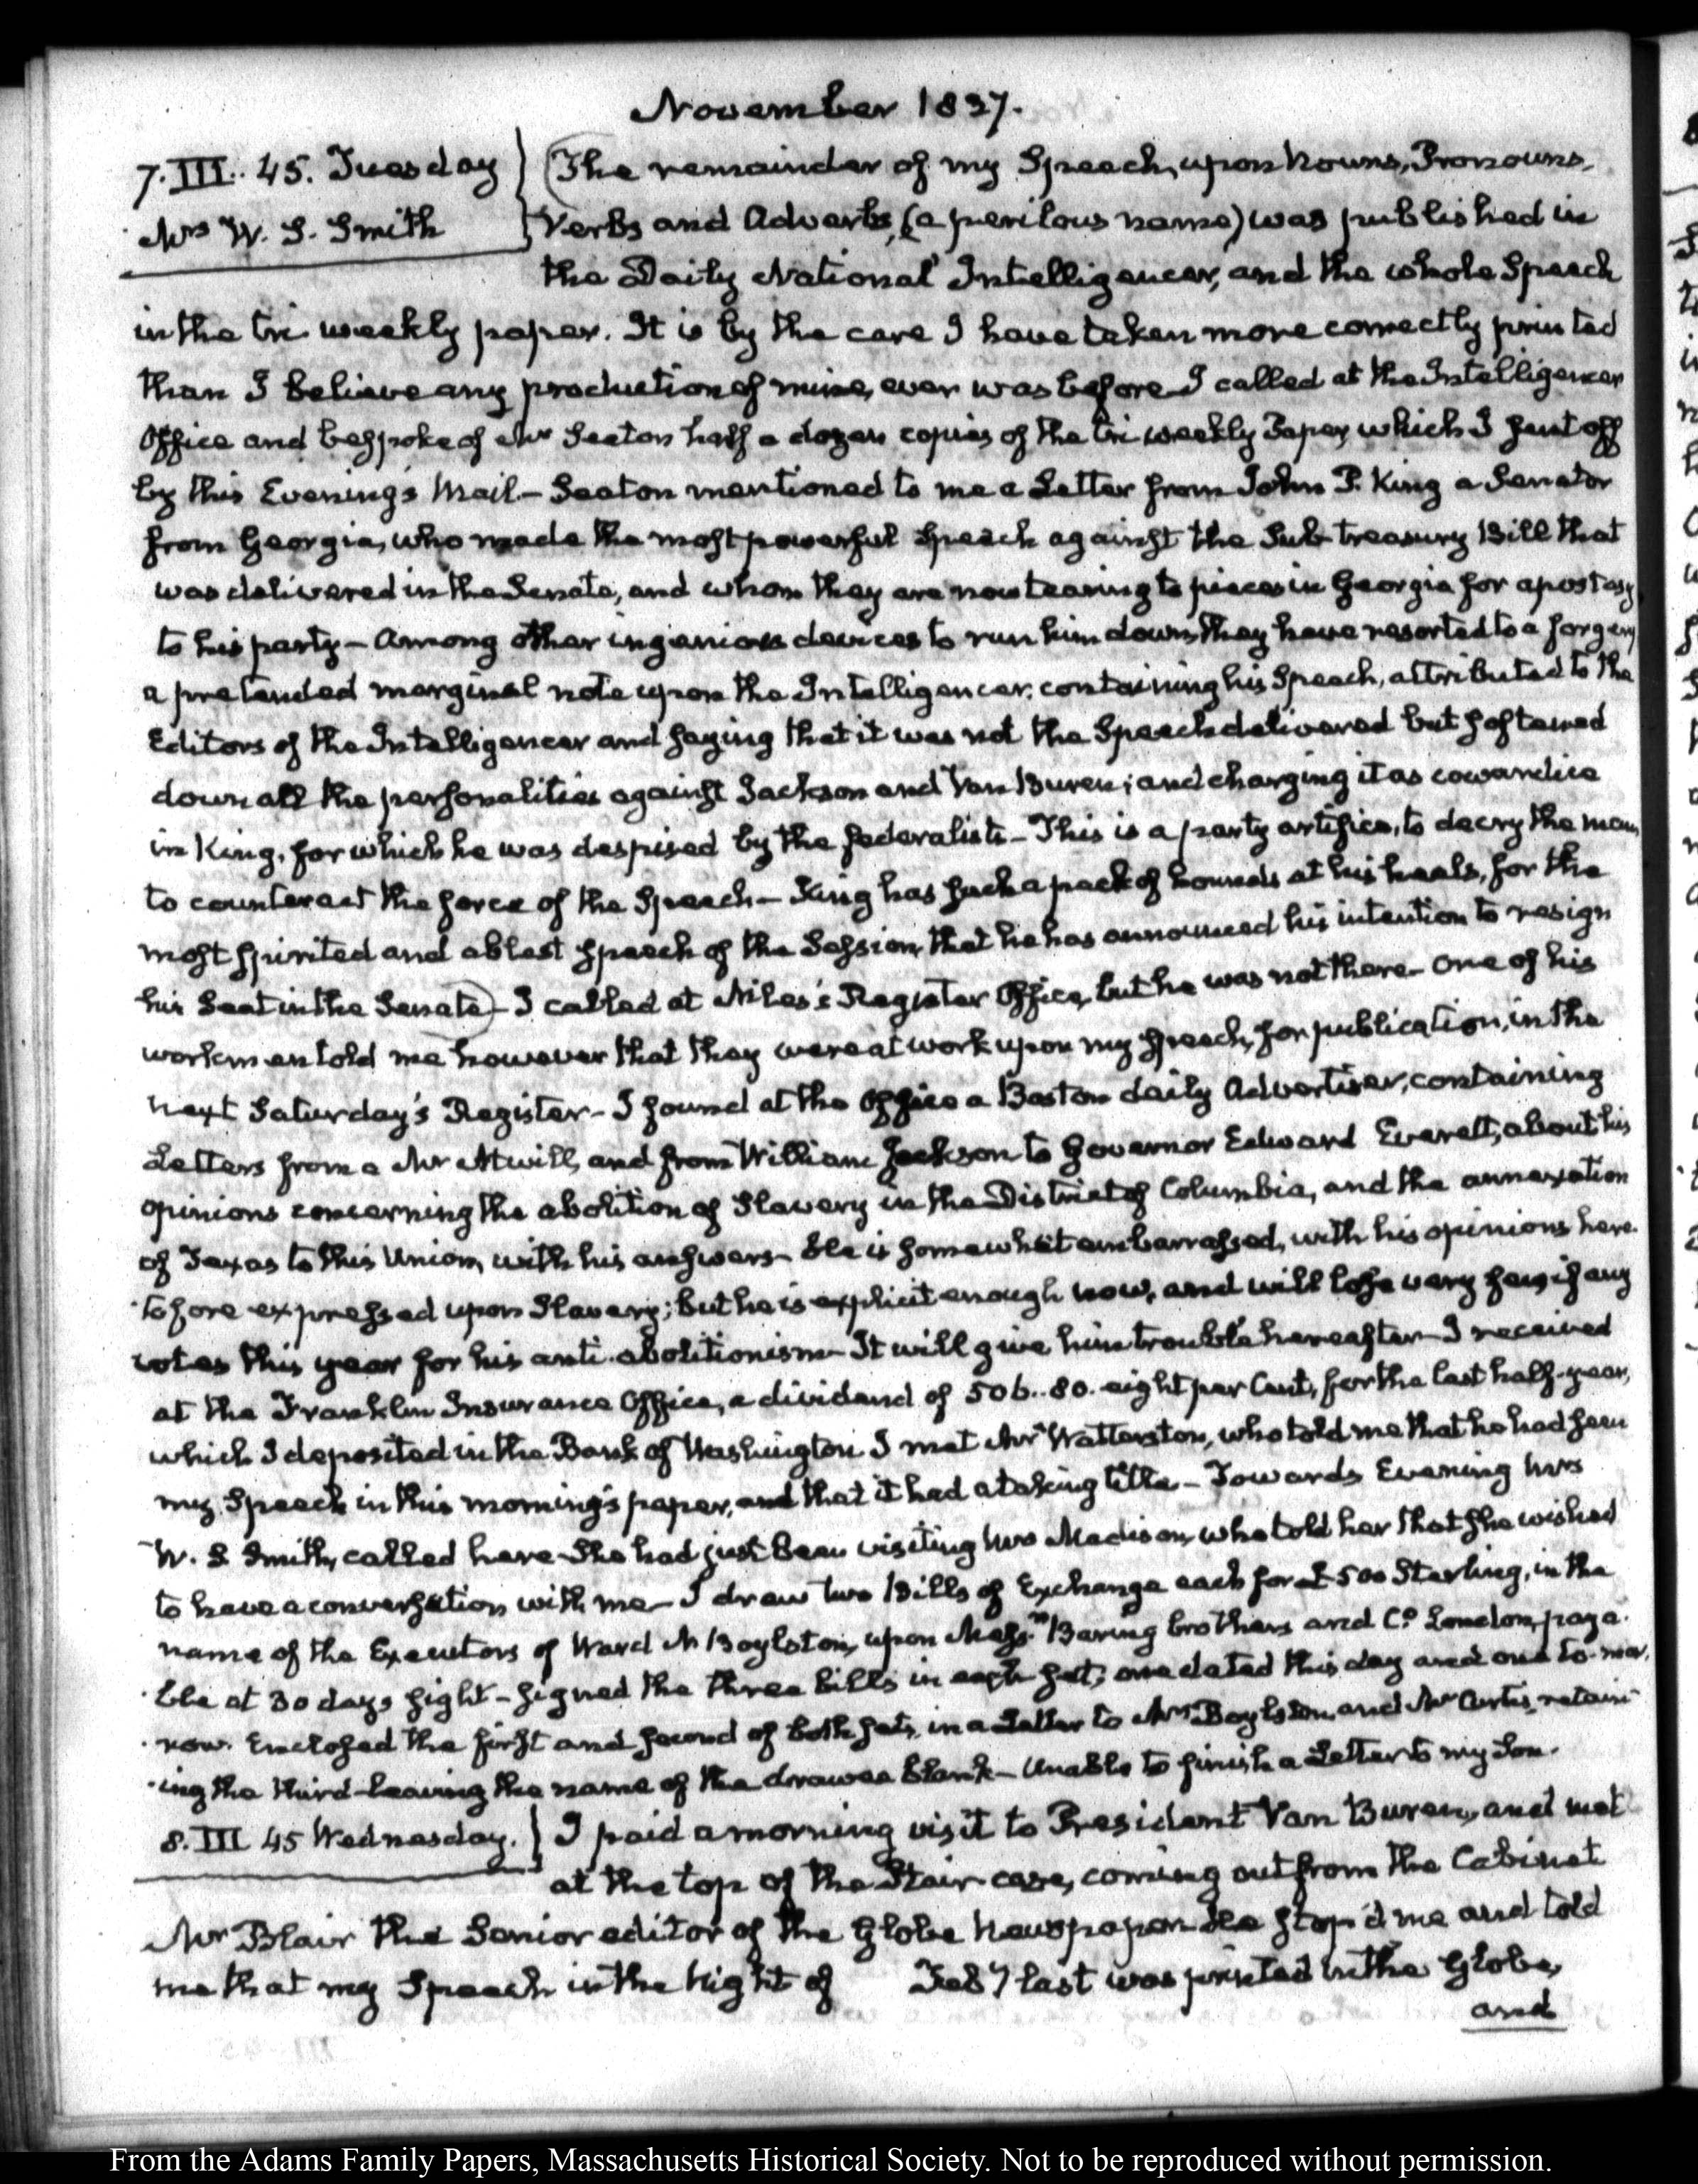 November 1837.
7. III.. 45. Tuesday
Mrs W. S. Smith
The remainder of my Speech, upon Nouns, Pronouns,
Verbs and Adverbs, (a perilous name) was published in
the Daily National Intelligencer, and the whole Speech
in the tri weekly paper. It is by the care I have taken more correctly printed
than I believe any production of mine, ever was before I called at the Intelligencer
Office and bespoke of Mr Seaton half a dozen copies of the tri weekly Paper, which I sent off
by this Evening's Mail — Seaton mentioned to me a Letter from John P. King a Senator
from Georgia, who made the most powerful Speech against the Sub-treasury Bill that
was delivered in the Senate, and whom they are now tearing to pieces in Georgia for apostasy
to his party — Among other ingenious devices to run him down, they have resorted to a forgery
a pretended marginal note upon the Intelligencer, containing his Speech, attributed to the
Editors of the Intelligencer and saying that it was not the Speech delivered but softened
down all the personalities against Jackson and Van Buren; and charging it as cowardice
in King, for which he was despised by the federalists — This is a party artifice, to decry the man,
to counteract the force of the Speech — King has such a pack of hounds at his heels, for the
most spirited and ablest Speech of the Session, that he has announced his intention to resign
his Seat in the Senate) — I called at Niles's Register Office, but he was not there — One of his
workmen told me however that they were at work upon my Speech, for publication, in the
next Saturday's Register — I found at the Office a Boston daily Advertiser, containing
Letters from a Mr Atwill, and from William Jackson to Governor Edward Everett, about his
opinions concerning the abolition of Slavery in the District of Columbia, and the annexation
of Texas to this Union, with his answers — He is somewhat embarrassed, with his opinions here-
tofore expressed upon Slavery; but he is explicit enough now, and will lose very few if any
votes this year for his anti-abolitionism — It will give him trouble hereafter — I received
at the Franklin Insurance Office, a dividend of 506..80. eight per Cent, for the last half-year,
which I deposited in the Bank of Washington. I met Mr Watterston, who told me that he had seen
my Speech in this morning's paper, and that it had a taking title — Towards Evening Mrs
W. S Smith, called here — She had just been visiting Mrs Madison, who told her that she wished
to have a conversation with me — I drew two Bills of Exchange each for £500 Sterling, in the
name of the Executors of Ward N Boylston, upon Messrs Baring brothers and Co London, paya-
ble at 30 days sight — signed the three bills in each set, one dated this day and one to-mor-
row. Enclosed the first and second of both sets, in a Letter to Mrs Boylston, and Mr Curtis, retain-
ing the third — leaving the name of the drawee blank — Unable to finish a Letter to my Son.
8. III 45 Wednesday.
I paid a morning visit to President Van Buren, and met
at the top of the Stair case, coming out from the Cabinet
Mr Blair the Senior editor of the Globe Newspaper — He stop'd me and told
me that my Speech in the Night of Feby last was printed in the Globe,
and
From the Adams Family Papers, Massachusetts Historical Society. Not to be reproduced without permission.